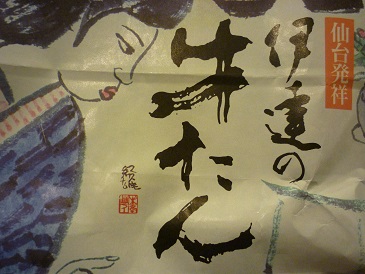 仙台発祥
伊達の
牛たん